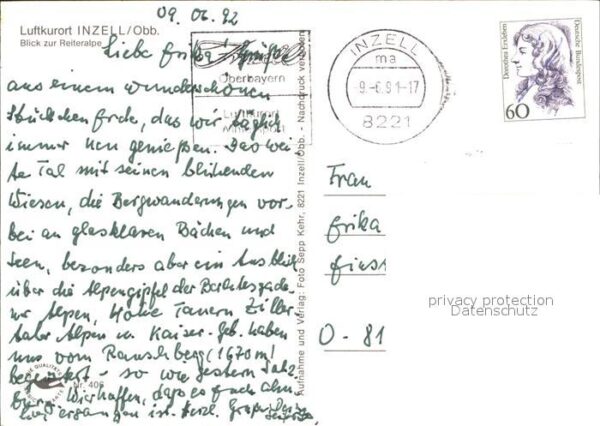 09.06.92
Luftkurort INZELL/Obb.
Blick zur Reiteralpe
Liebe Erika! Grüße
aus einem wunderschönen
Stückchen Erde, das wir täglich
immer neu genießen. Das wei-
te Tal mit seinen blühenden
Wiesen, die Bergwanderungen vor-
bei an glasklaren Bächen und
Seen, besonders aber ein Ausblick
über die Alpengipfel der Berchtesgade-
ner Alpen, Hohe Tauern, Ziller-
taler Alpen u. Kaiser-Geb. haben
uns vom Rauschberg (1670m)
begeistert - so wie gestern Salz-
burg. Wir hoffen, dass es Euch ähn-
lich ergangen ist. Herzl. Grüße
Nr. 406
Oberbayern
Luftkurort
INZELL
ma
-9.-6.91-17
8221
Dorothea Erxleben
Deutsche Bundespost
60
Aufnahme und Verlag: Foto Sepp Kehr, 8221 Inzell/Obb. - Nachdruck verboten
Frau
Erika
O - 81
privacy protection
Datenschutz